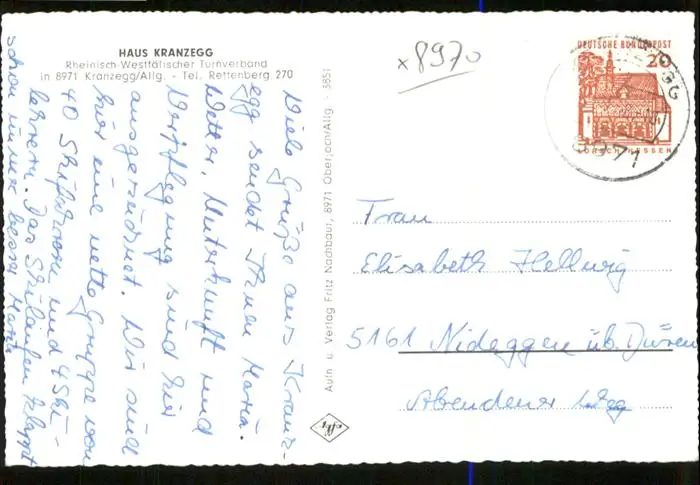 HAUS KRANZEGG
Rheinisch-Westfälischer Turnverband
in 8971 Kranzegg/Allg. - Tel. Rettenberg 270
x 8970
DEUTSCHE BUNDESPOST
20
LORSCH/HESSEN
8971
Viele Grüße aus Kranz-
egg sendet Ihnen Maria.
Wetter, Unterkunft und
Verpflegung sind hier
ausgezeichnet. Wir sind
hier eine nette Gruppe von
40 und 4 Ski-
lehrern. Das Skilaufen klappt
schon immer besser. Maria
Aufn. u. Verlag Fritz Nachbaur, 8971 Oberjoch/Allg. - 3851
Frau
Elisabeth Hellwig
5161 Nideggen üb. Düren
Abendener Weg